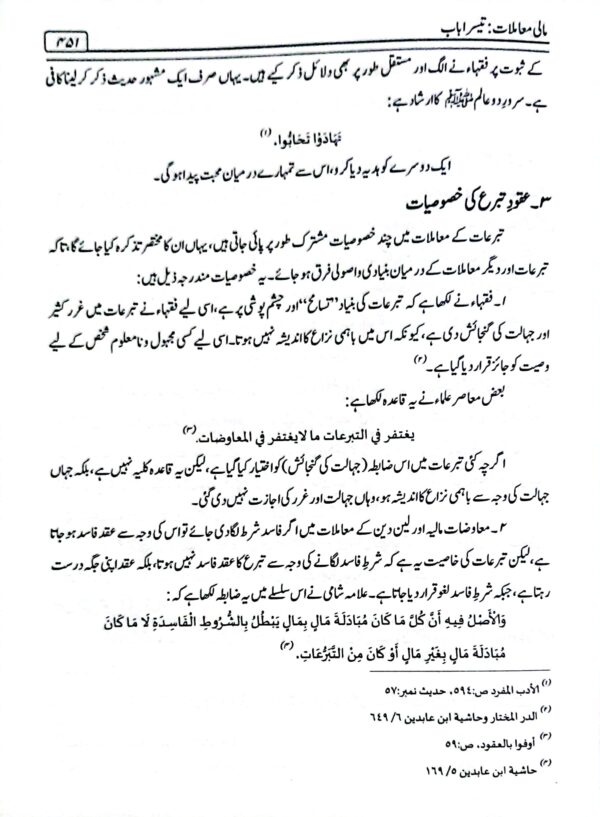 مالی معاملات: تیسرا باب
۴۵۱
کے ثبوت پر فقہاء نے الگ اور مستقل طور پر بھی دلائل ذکر کیے ہیں۔ یہاں صرف ایک مشہور حدیث ذکر کر لینا کافی
ہے۔ سرورِ دو عالم ﷺ کا ارشاد ہے:
تَهَادَوْا تَحَابُّوا. (۱)
ایک دوسرے کو ہدیہ دیا کرو، اس سے تمہارے درمیان محبت پیدا ہو گی۔
۳۔ عقودِ تبرع کی خصوصیات
تبرعات کے معاملات میں چند خصوصیات مشترک طور پر پائی جاتی ہیں، یہاں ان کا مختصر تذکرہ کیا جائے گا، تاکہ
تبرعات اور دیگر معاملات کے درمیان بنیادی و اصولی فرق ہو جائے۔ یہ خصوصیات مندرجہ ذیل ہیں:
۱۔ فقہاء نے لکھا ہے کہ تبرعات کی بنیاد "تسامح" اور چشم پوشی پر ہے، اسی لیے فقہاء نے تبرعات میں غررِ کثیر
اور جہالت کی گنجائش دی ہے، کیونکہ اس میں باہمی نزاع کا اندیشہ نہیں ہوتا۔ اسی لیے کسی مجہول و نامعلوم شخص کے لیے
وصیت کو جائز قرار دیا گیا ہے۔ (۲)
بعض معاصر علماء نے یہ قاعدہ لکھا ہے:
يغتفر في التبرعات ما لا يغتفر في المعاوضات. (۳)
اگرچہ کئی تبرعات میں اس ضابطہ (جہالت کی گنجائش) کو اختیار کیا گیا ہے، لیکن یہ قاعدہ کلیہ نہیں ہے، بلکہ جہاں
جہالت کی وجہ سے باہمی نزاع کا اندیشہ ہو، وہاں جہالت اور غرر کی اجازت نہیں دی گئی۔
۲۔ معاوضات مالیہ اور لین دین کے معاملات میں اگر فاسد شرط لگا دی جائے تو اس کی وجہ سے عقد فاسد ہو جاتا
ہے، لیکن تبرعات کی خاصیت یہ ہے کہ شرطِ فاسد لگانے کی وجہ سے تبرع کا عقد فاسد نہیں ہوتا، بلکہ عقد اپنی جگہ درست
رہتا ہے، جبکہ شرطِ فاسد لغو قرار دیا جاتا ہے۔ علامہ شامی نے اس سلسلے میں یہ ضابطہ لکھا ہے کہ:
وَالْأَصْلُ فِيهِ أَنَّ كُلَّ مَا كَانَ مُبَادَلَةَ مَالٍ بِمَالٍ يَبْطُلُ بِالشُّرُوطِ الْفَاسِدَةِ لَا مَا كَانَ
مُبَادَلَةَ مَالٍ بِغَيْرِ مَالٍ أَوْ كَانَ مِنْ التَّبَرُّعَاتِ. (۴)
(۱) الأدب المفرد ص: ۵۹۴، حدیث نمبر: ۵۷
(۲) الدر المختار وحاشية ابن عابدين ۶/ ۶۴۹
(۳) أوفوا بالعقود، ص: ۵۹
(۴) حاشية ابن عابدين ۵/ ۱۶۹